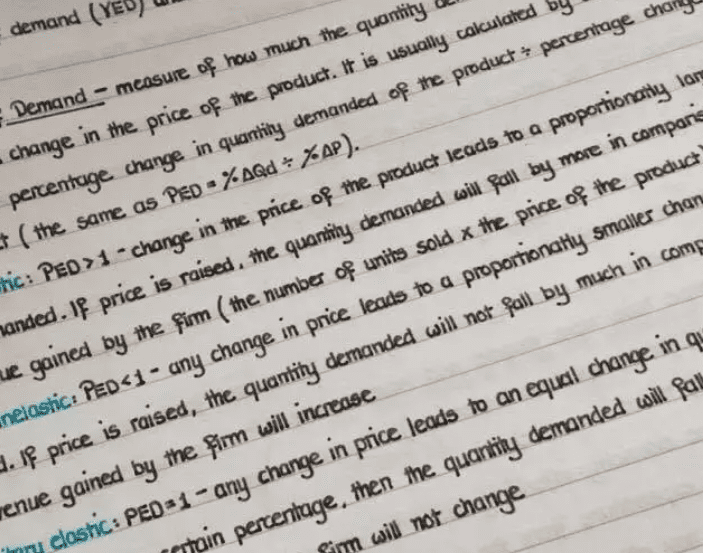 demand (YED)
Demand - measure of how much the quantity
change in the price of the product. It is usually calculated by
percentage change in quantity demanded of the product ÷ percentage change
(the same as PED = %ΔQd ÷ %ΔP).
: PED > 1 - change in the price of the product leads to a proportionatly
. If price is raised, the quantity demanded will fall by more in
gained by the firm (the number of units sold x the price of the product)
inelastic: PED < 1 - any change in price leads to a proportionatly smaller
. If price is raised, the quantity demanded will not fall by much in
gained by the firm will increase
elastic: PED = 1 - any change in price leads to an equal change in
percentage, then the quantity demanded will fall
firm will not change